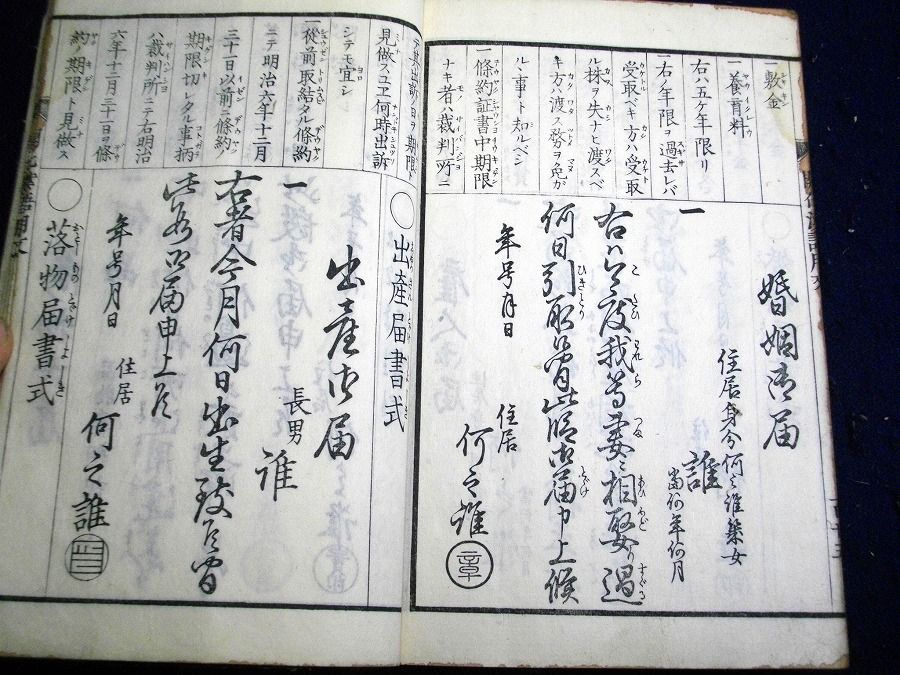 一敷金
一養育料
右ハ五ケ年限リ
一右ノ年限ヲ過去レバ
受取ベキ方ハ受取
ル株ヲ失ナヒ渡スベ
キ方ハ渡ス務ヲ免が
ル丶事ト知ルベシ
一條約証書中期限
ナキ者ハ裁判所ニ
婚姻御届
住居身分何之誰築女
一
誰
当何年何月
右ハ今度我等妻ニ相娶り過
何日引取候間此段御届申上候
年号月日
住居
何之誰
章
テ其出訴ノ日ヲ期限ト
見做スユヱ何時出訴
シテモ宜シ
一従前取結タル條約
ニテ明治六年十二月
三十一日以前ニ條約ノ
期限切レタル事柄
ハ裁判所ニテ右明治
六年十二月三十一日ヲ條
約ノ期限ト見做ス
○出産届書式
出産御届
一
長男
誰
右者今月何日出生致候間
此段御届申上候
年号月日
住居
何之誰
印
○落物届書式